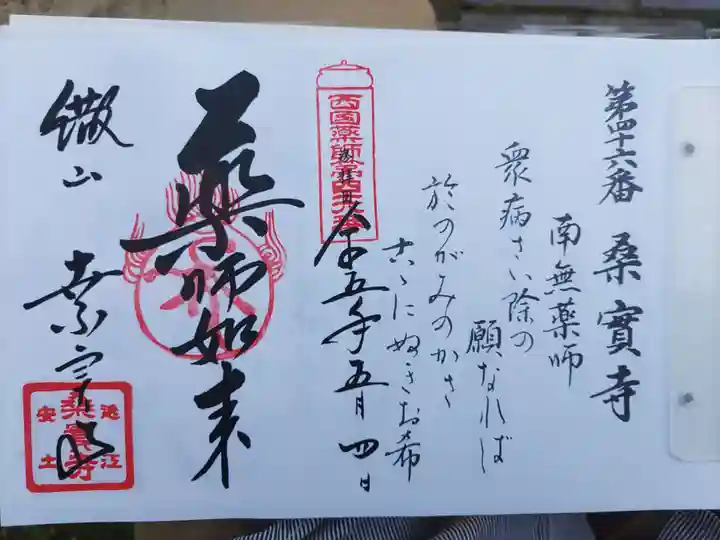 第四十六番 桑實寺
南無薬師
衆病さい除の
願なれば
於のがみのかさ
こゝにぬきお希
西国薬師第四十六番
奉拝
令五年五月四日
薬師如来
繖山 桑實寺
近江
桑實寺
安土